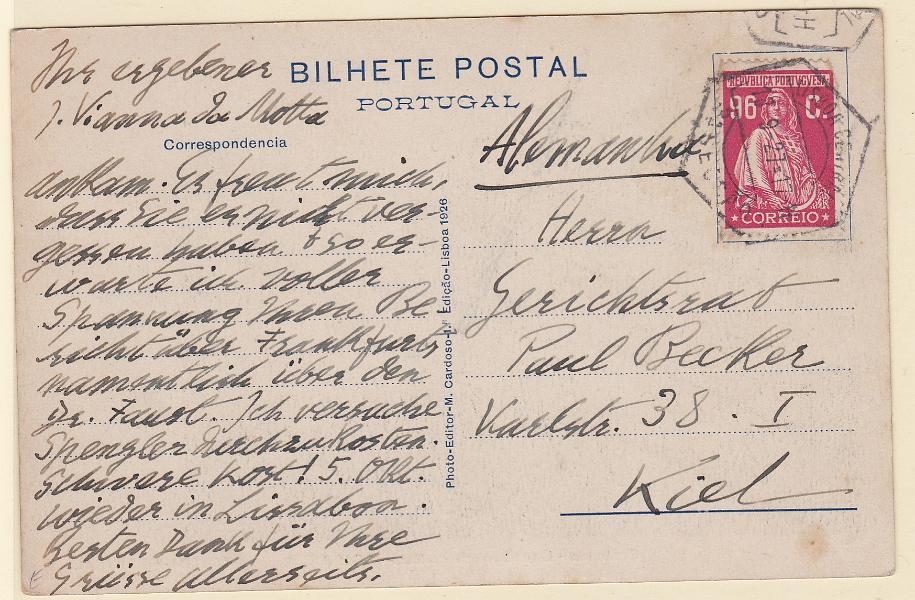 Ihr ergebener
J. Vianna da Motta
BILHETE POSTAL
PORTUGAL
Correspondencia
ankam. Es freut mich,
dass Sie es nicht ver-
gessen haben & so er-
warte ich voller
Spannung Ihren Be
richt über Frankfurt,
namentlich über den
Dr. Faust. Ich versuche
Spengler durchzukosten.
Schwere Kost! 5. Okt.
wieder in Lissabon.
Besten Dank für Ihre
Grüsse allerseits.
Photo-Editor-M. Cardoso-1ª Edição-Lisboa 1926
REPVBLICA PORTVGVESA
96 C.
CORREIO
Alemanha
Herrn
Gerichtsrat
Paul Becker
Karlstr. 38. I
Kiel